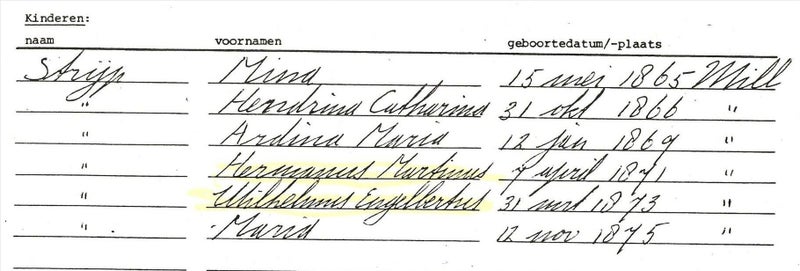 Kinderen:
naam voornamen geboortedatum/-plaats
Strijp Mina 15 mei 1865 Mill
" Hendrina Catharina 31 okt 1866 "
" Ardina Maria 12 jan 1869 "
" Hermanus Martinus 7 april 1871 "
" Wilhelmus Engelbertus 31 mrt 1873 "
" Maria 12 nov 1875 "